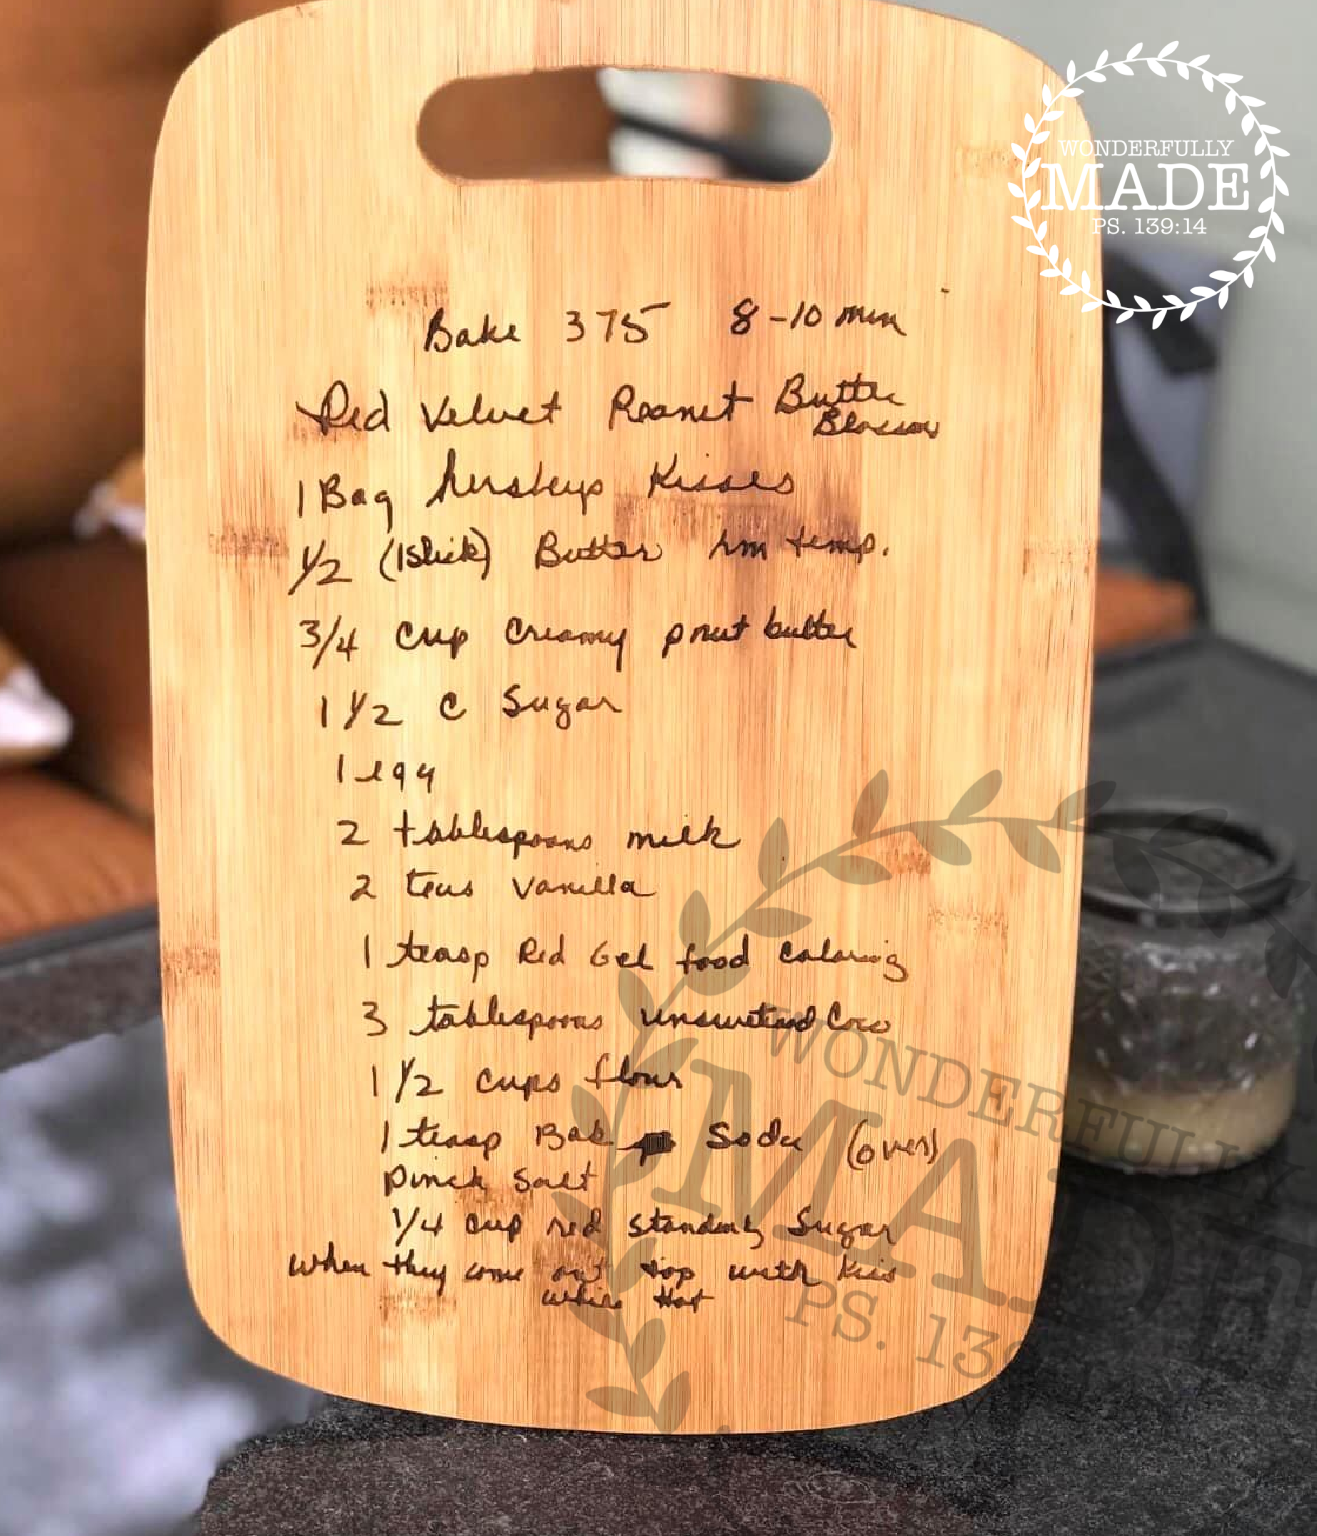 WONDERFULLY
MADE
PS. 139:14
Bake 375 8-10 min
Red Velvet Peanut Butter
Blossom
1 Bag Hersheys Kisses
1/2 (1 stick) Butter rm temp.
3/4 cup Creamy pnut butter
1 1/2 c Sugar
1 egg
2 tablespoons milk
2 teas Vanilla
1 teasp Red Gel food coloring
3 tablespoons unsweetened Coco
1 1/2 cups flour
1 teasp Bak Soda (over)
pinch Salt
1/4 cup red standing Sugar
when they come out top with kiss
while Hot
WONDERFULLY
MADE
PS. 139